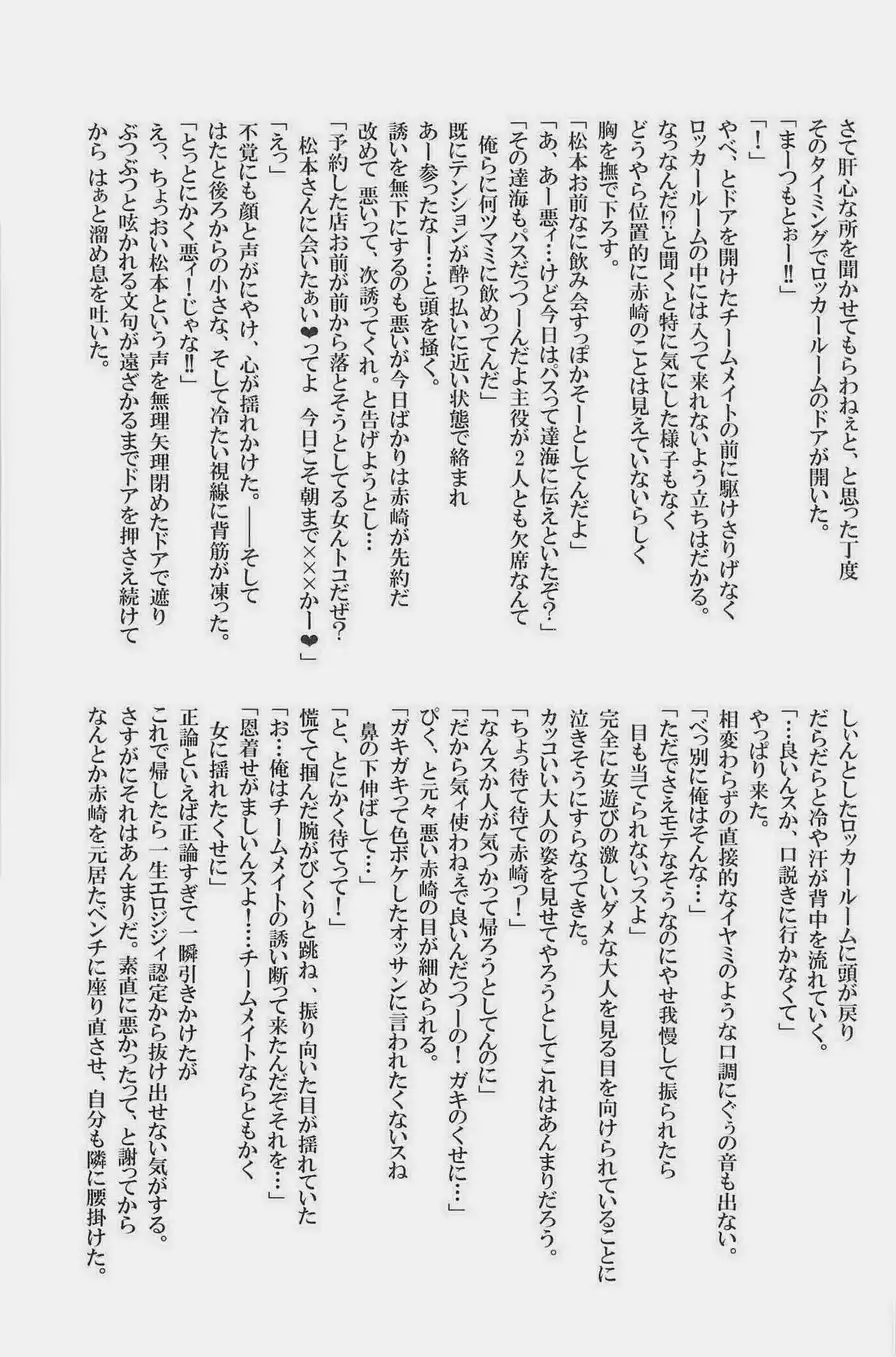 さて肝心な所を聞かせてもらわねぇと、と思った丁度
そのタイミングでロッカールームのドアが開いた。
「まーつもとぉー!!」
「！」
やべ、とドアを開けたチームメイトの前に駆けさりげなく
ロッカールームの中には入って来れないよう立ちはだかる。
なっなんだ!?と聞くと特に気にした様子もなく
どうやら位置的に赤崎のことは見えていないらしく
胸を撫で下ろす。
「松本お前なに飲み会すっぽかそーとしてんだよ」
「あ、あー悪ィ…けど今日はパスって達海に伝えといたぞ？」
「その達海もパスだっつーんだよ主役が２人とも欠席なんて
俺らに何ツマミに飲めってんだ」
既にテンションが酔っ払いに近い状態で絡まれ
あー参ったなー…と頭を掻く。
誘いを無下にするのも悪いが今日ばかりは赤崎が先約だ
改めて 悪いって、次誘ってくれ。と告げようとし…
「予約した店お前が前から落とそうとしてる女んトコだぜ？
松本さんに会いたぁい❤ってよ　今日こそ朝まで×××かー❤」
「えっ」
不覚にも顔と声がにやけ、心が揺れかけた。――そして
はたと後ろからの小さな、そして冷たい視線に背筋が凍った。
「とっとにかく悪ィ！じゃな!!」
えっ、ちょっおい松本という声を無理矢理閉めたドアで遮り
ぶつぶつと呟かれる文句が遠ざかるまでドアを押さえ続けて
から はぁと溜め息を吐いた。
しぃんとしたロッカールームに頭が戻り
だらだらと冷や汗が背中を流れていく。
「…良いんスか、口説きに行かなくて」
やっぱり来た。
相変わらずの直接的なイヤミのような口調にぐぅの音も出ない。
「べっ別に俺はそんな…」
「ただでさえモテなそうなのにやせ我慢して振られたら
目も当てられないっスよ」
完全に女遊びの激しいダメな大人を見る目を向けられていることに
泣きそうにすらなってきた。
カッコいい大人の姿を見せてやろうとしてこれはあんまりだろう。
「ちょっ待て待て赤崎っ！」
「なんスか人が気つかって帰ろうとしてんのに」
「だから気ィ使わねぇで良いんだっつーの！ ガキのくせに…」
ぴく、と元々悪い赤崎の目が細められる。
「ガキガキって色ボケしたオッサンに言われたくないスね
鼻の下伸ばして…」
「と、とにかく待てって！」
慌てて掴んだ腕がびくりと跳ね、振り向いた目が揺れていた
「お…俺はチームメイトの誘い断って来たんだぞそれを…」
「恩着せがましいんスよ！……チームメイトならともかく
女に揺れたくせに」
正論といえば正論すぎて一瞬引きかけたが
これで帰したら一生エロジジィ認定から抜け出せない気がする。
さすがにそれはあんまりだ。素直に悪かったって、と謝ってから
なんとか赤崎を元居たベンチに座り直させ、自分も隣に腰掛けた。